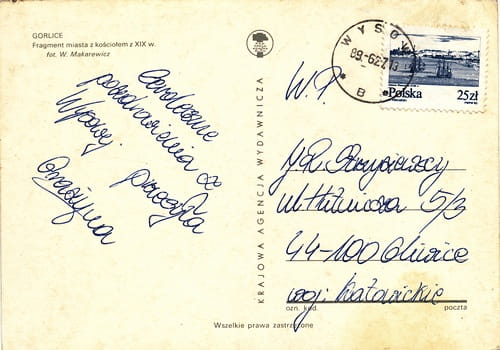 GORLICE
Fragment miasta z kościołem z XIX w.
fot. W. Makarewicz
Serdeczne
pozdrowienia z
Wysowej
przesyła
Grażyna
KRAJOWA AGENCJA WYDAWNICZA
WYSOWA
89.-6.27.13
B
Polska
25zł
W.P.
44-100 Gliwice
woj: katowickie
ozn. kod.
poczta
Wszelkie prawa zastrzeżone